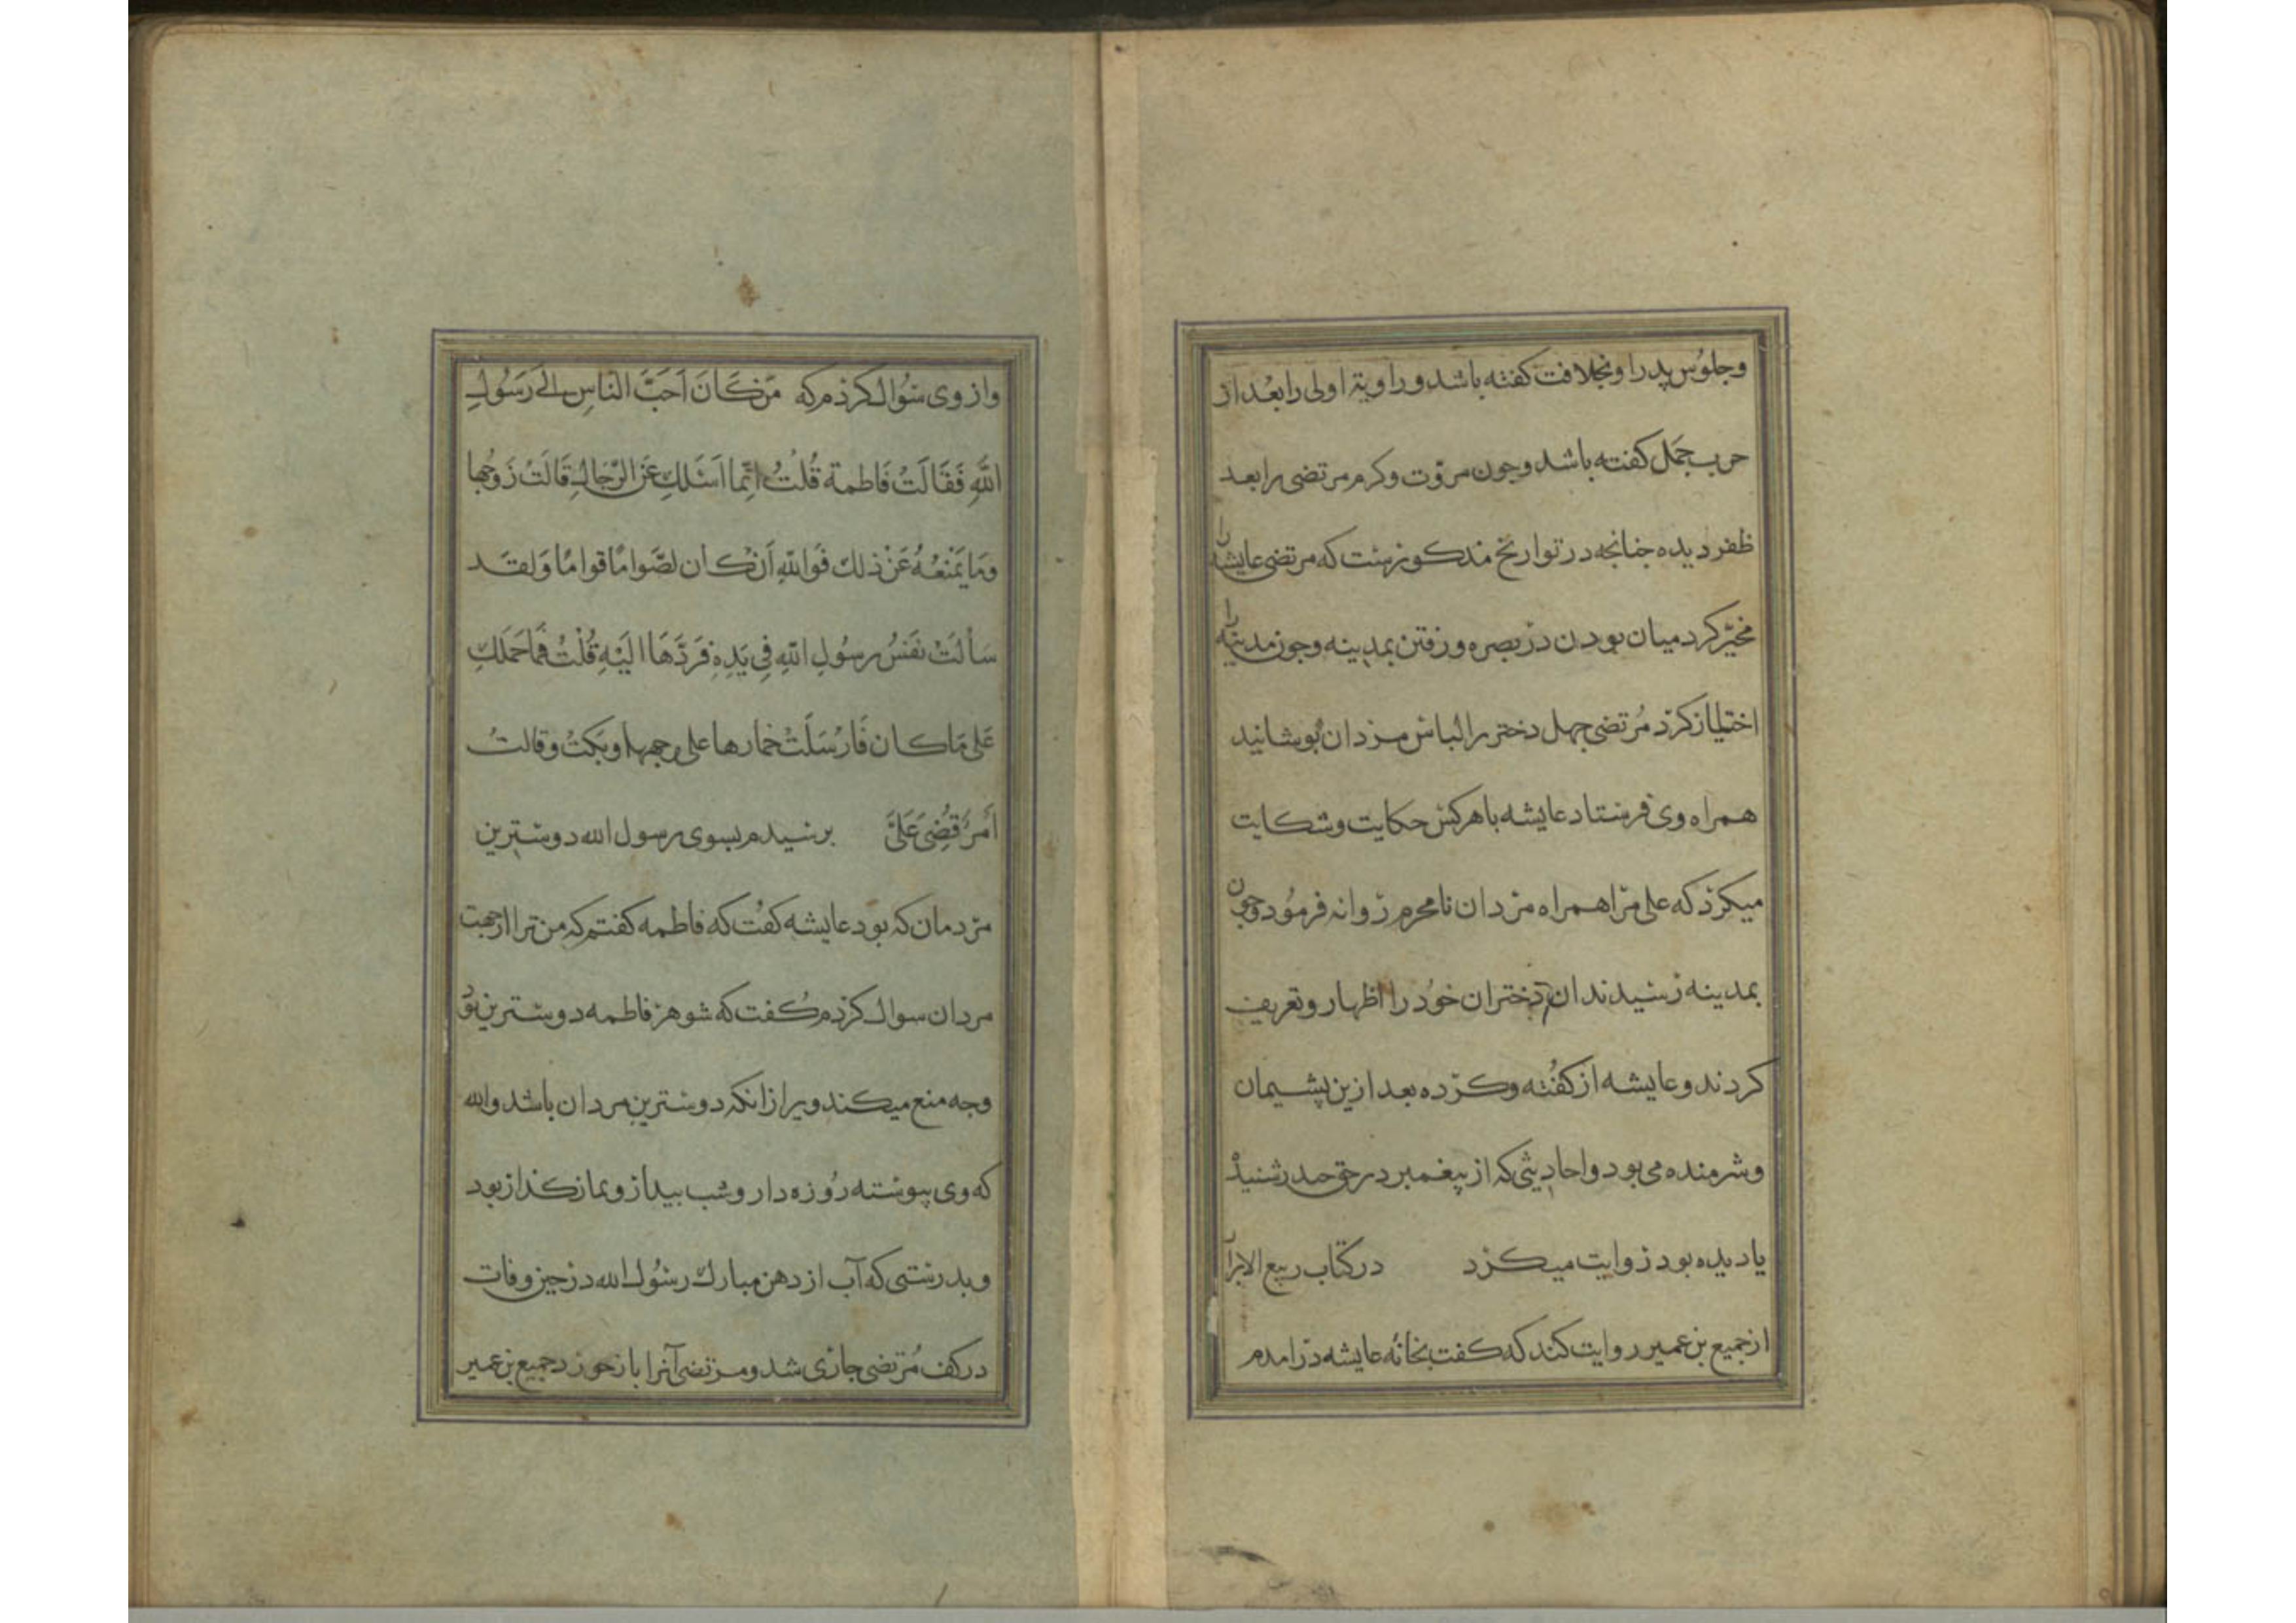 وجلوس پدر او بخلافت کفته باشد و راویة اولی را بعد از
حرب جمل کفته باشد وجون مروت وکرم مرتضی را بعد
ظفر دیده جنانجه در تواریخ مذکورست که مرتضی عایشه را
مخیر کرد میان بودن در بصره ورفتن بمدینه وجون مدینه را
اختیار کرد مرتضی جهل دختر را لباس مردان بوشانید
همراه وی فرستاد عایشه با هرکس حکایت وشکایت
میکرد که علی مرا همراه مردان نامحرم روانه فرمود وجون
بمدینه رسیدند ان دختران خود را اظهار وتعریف
کردند وعایشه از کفته وکرده بعد ازین پشیمان
وشرمنده می بود واحادیثی که از پیغمبر در حق حیدر شنید
یا دیده بود روایت میکرد در کتاب ربیع الابرار
از جمیع بن عمیر روایت کند که کفت بخانه عایشه درامدم
واز وی سؤال کردم که مَن کَانَ اَحَبَّ النَّاسِ الی رَسُولِ
اللَّهِ فَقَالَتْ فَاطمة قُلتُ اِنَّما اَسْئلكِ عَنِ الرِّجَالِ قَالَتْ زَوجُها
وَمَا یَمْنَعُهُ عَنْ ذلك فَوَاللّهِ اَنْ كان لصَّوامًا قوامًا وَلقَد
سَألَتْ نَفَسُ رسُولِ اللّهِ فِی یَدِهِ فَرَدَّهَا اِلَیْهِ قُلْتُ فَمَا حَمَلَكِ
عَلی مَا كان فَارْسَلَتْ خمارها علی وجهها وبَكَتْ وقالتْ
اَمرٌ قُضِیَ عَلَیَّ برسیدم بسوی رسول الله دوسترین
مردمان که بود عایشه کفت که فاطمه کفتم که من ترا از جهت
مردان سوال کردم کفت که شوهر فاطمه دوسترین بود
وجه منع میکند ویرا از انکه دوسترین مردان باشد والله
که وی پیوسته روزه دار وشب بیدار ونماز کذار بود
وبدرستی که آب از دهن مبارك رسول الله در حین وفات
در کف مرتضی جاری شد ومرتضی آنرا باز خورد جمیع بن عمیر